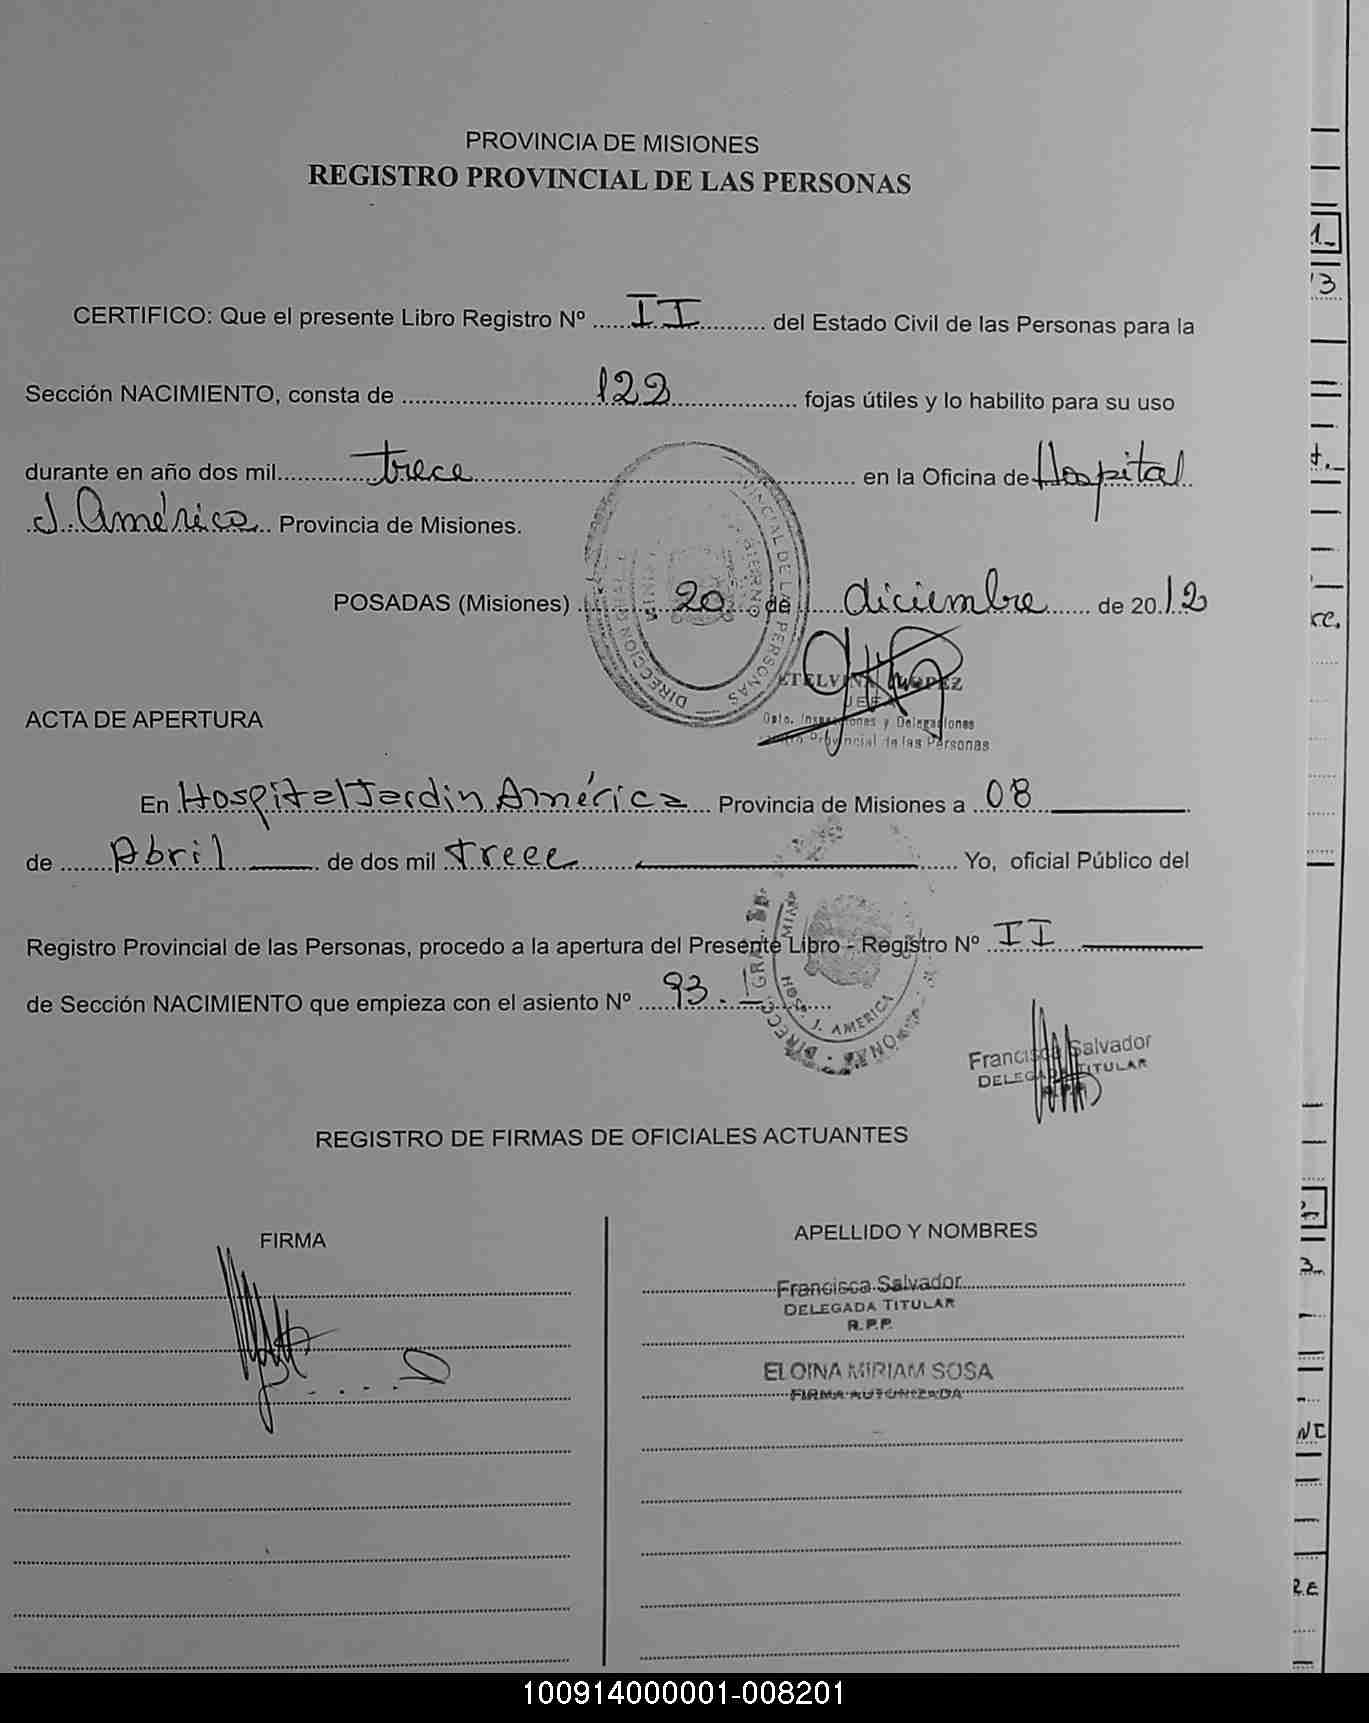 PROVINCIA DE MISIONES
REGISTRO PROVINCIAL DE LAS PERSONAS
CERTIFICO: Que el presente Libro Registro Nº II del Estado Civil de las Personas para la
Sección NACIMIENTO, consta de 122 fojas útiles y lo habilito para su uso
durante en año dos mil trece en la Oficina de Hospital
J. América Provincia de Misiones.
POSADAS (Misiones) 20 de diciembre de 2012
LOPEZ
JEFA
Dpto. Inspecciones y Delegaciones
Provincial de las Personas
ACTA DE APERTURA
En Hospital Jardin América Provincia de Misiones a 08
de Abril de dos mil trece Yo, oficial Público del
Registro Provincial de las Personas, procedo a la apertura del Presente Libro - Registro Nº II
de Sección NACIMIENTO que empieza con el asiento Nº 93.-
HOSP. J. AMERICA
Francisca Salvador
DELEGADA TITULAR
REGISTRO DE FIRMAS DE OFICIALES ACTUANTES
FIRMA
APELLIDO Y NOMBRES
Francisca Salvador
DELEGADA TITULAR
R.P.P.
ELOINA MIRIAM SOSA
FIRMA AUTORIZADA
100914000001-008201